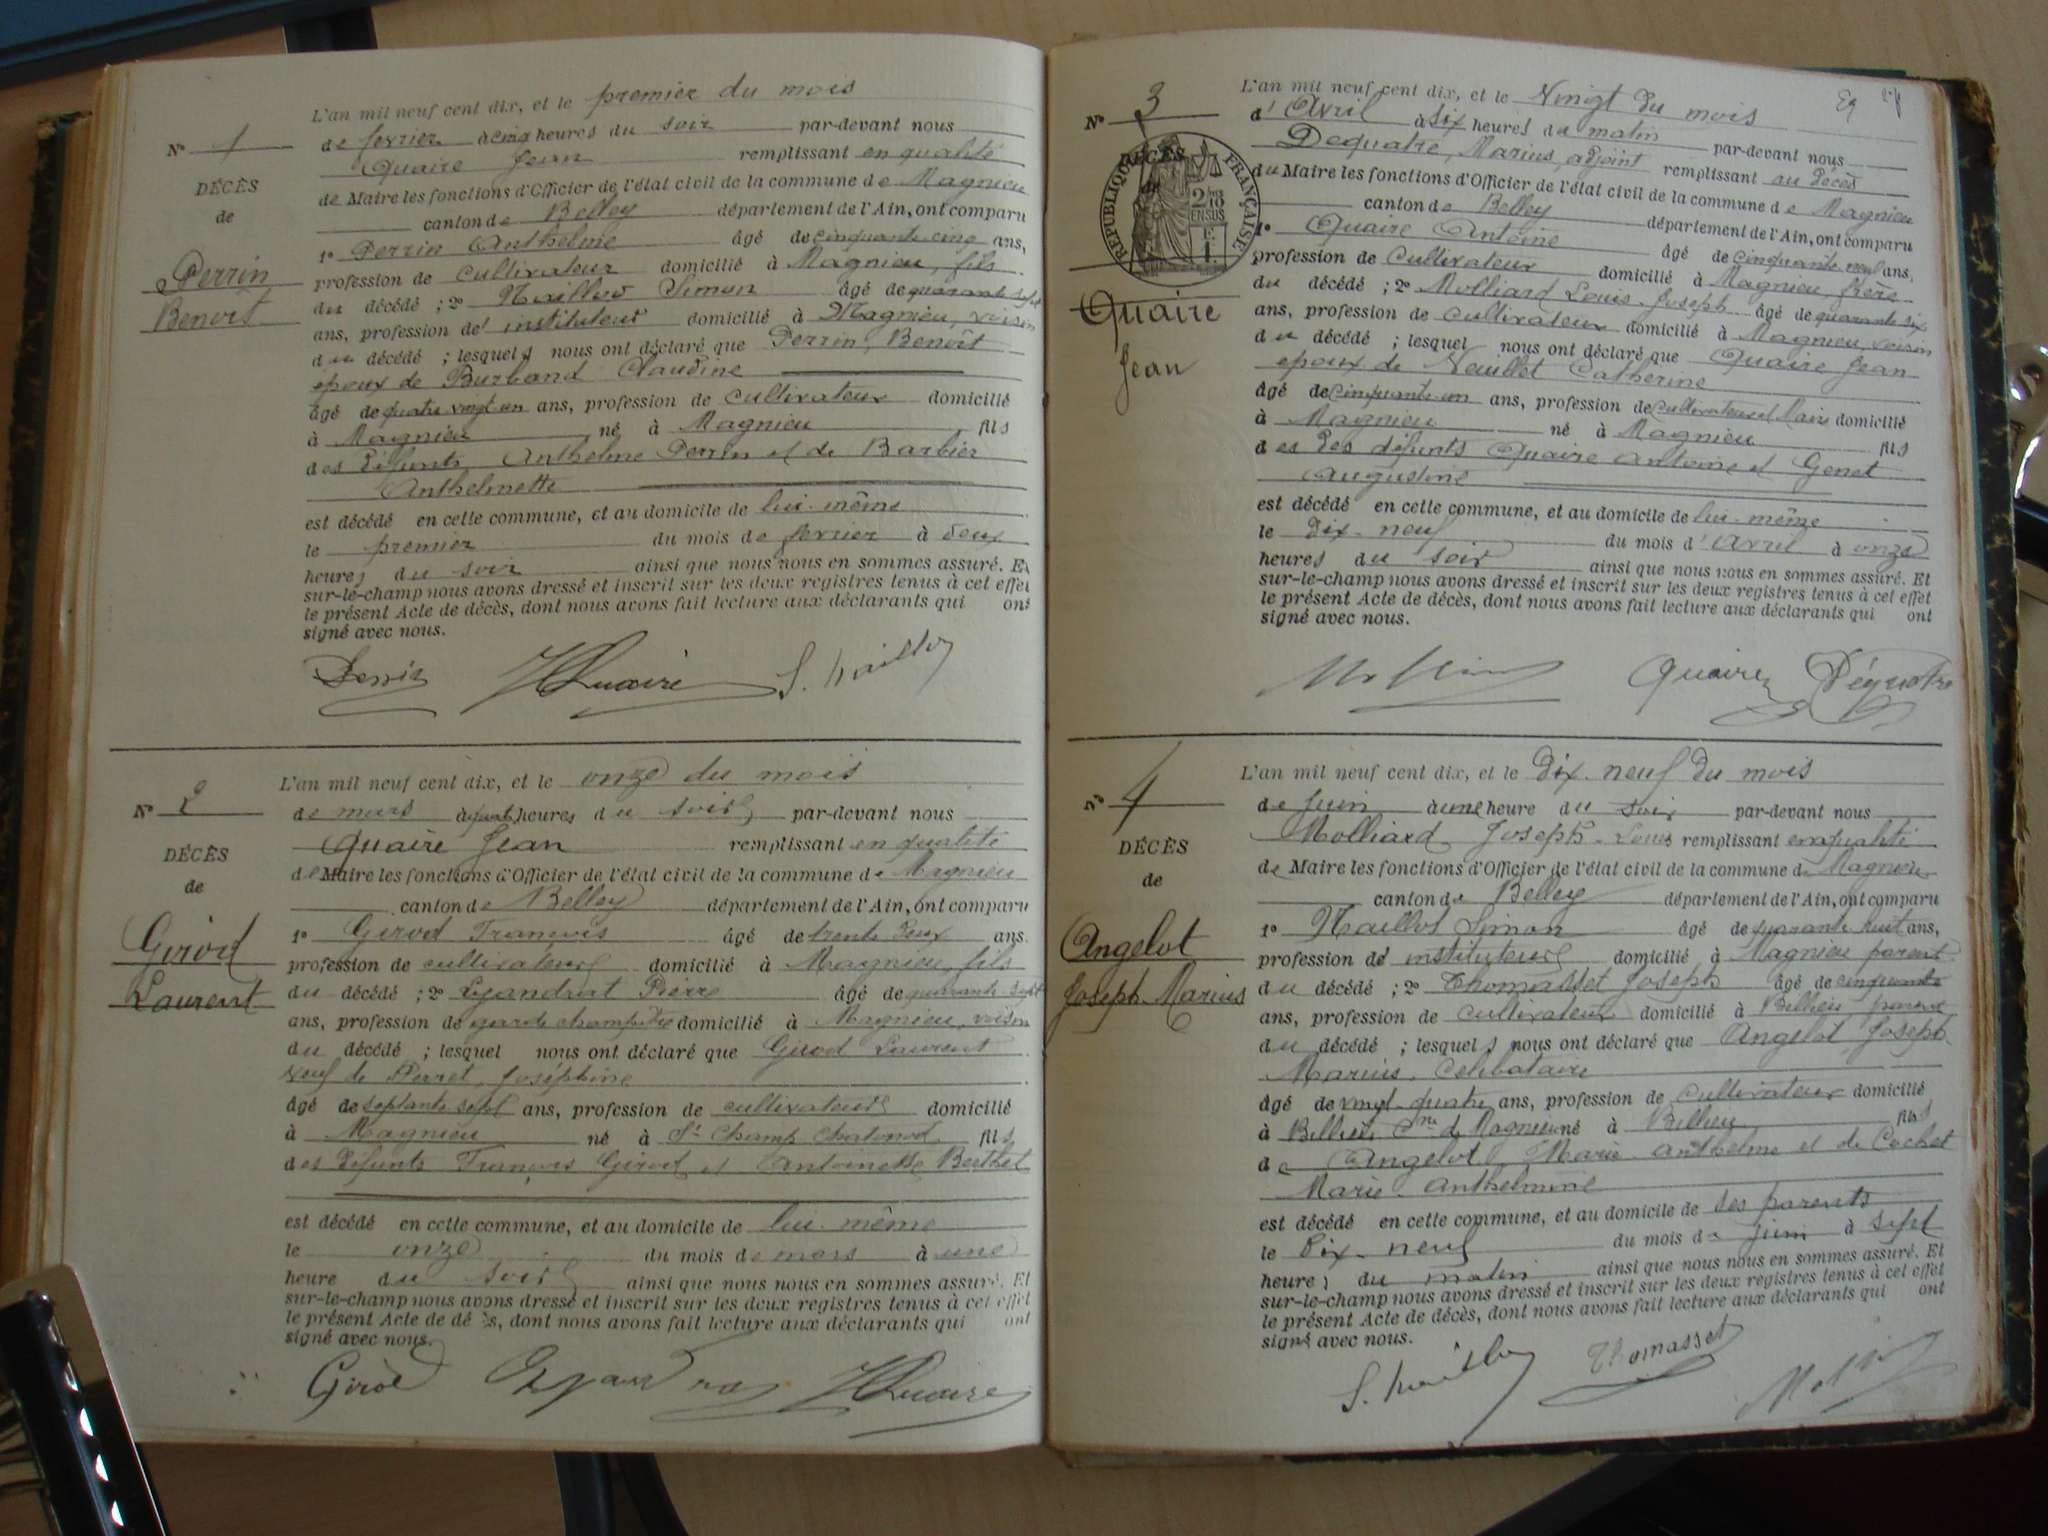 L'an mil neuf cent dix, et le premier du mois
N° 1
de fevrier à cinq heures du soir par-devant nous
Quaire Jean remplissant en qualité
DÉCÈS
de Maire les fonctions d'Officier de l'état civil de la commune de Magnieu
de
canton de Belley département de l'Ain, ont comparu
1° Perrin Anthelme âgé de cinquante cinq ans,
Perrin
Benoit
profession de cultivateur domicilié à Magnieu, fils
du décédé ; 2° Maillot Simon âgé de quarante sept
ans, profession d' instituteur domicilié à Magnieu, voisin
du décédé ; lesquels nous ont déclaré que Perrin, Benoît
époux de Burband Claudine
âgé de quatre vingt un ans, profession de cultivateur domicilié
à Magnieu né à Magnieu fils
des défunts Anthelme Perrin et de Barbier
Anthelmette
est décédé en cette commune, et au domicile de lui-même
le premier du mois de fevrier à deux
heures du soir ainsi que nous nous en sommes assuré. Et
sur-le-champ nous avons dressé et inscrit sur les deux registres tenus à cet effet
le présent Acte de décès, dont nous avons fait lecture aux déclarants qui ont
signé avec nous.
Quaire S. Maillot
L'an mil neuf cent dix, et le onze du mois
N° 2
de mars à quatre heures du soir par-devant nous
Quaire Jean remplissant en qualité
DÉCÈS
de Maire les fonctions d'Officier de l'état civil de la commune de Magnieu
de
canton de Belley département de l'Ain, ont comparu
Girod
Laurent
1° Girod François âgé de trente deux ans.
profession de cultivateur domicilié à Magnieu, fils
du décédé ; 2° Lyandrat Pierre âgé de quarante sept
ans, profession de garde champêtre domicilié à Magnieu, voisin
du décédé ; lesquel nous ont déclaré que Girod Laurent
veuf de Perret, Joséphine
âgé de septante sept ans, profession de cultivateur domicilié
à Magnieu né à St Champ Chatonod fils
des défunts François Girod et Antoinette Berthet
est décédé en cette commune, et au domicile de lui-même
le onze du mois de mars à une
heure du soir ainsi que nous nous en sommes assuré. Et
sur-le-champ nous avons dressé et inscrit sur les deux registres tenus à cet effet
le présent Acte de décès, dont nous avons fait lecture aux déclarants qui ont
signé avec nous.
Girod Quaire
L'an mil neuf cent dix, et le Vingt du mois
N° 3
d' Avril à six heures du matin par-devant nous
Dequatre, Marius, adjoint remplissant au décès
DÉCÈS
de
RÉPUBLIQUE FRANÇAISE
2/10 EN SUS
du Maire les fonctions d'Officier de l'état civil de la commune de Magnieu
canton de Belley département de l'Ain, ont comparu
1° Quaire Antoine âgé de cinquante neuf ans,
Quaire
Jean
profession de cultivateur domicilié à Magnieu, frère
du décédé ; 2° Molliard Louis-Joseph âgé de quarante six
ans, profession de cultivateur domicilié à Magnieu, voisin
du décédé ; lesquel nous ont déclaré que Quaire Jean
époux de Neuillet Catherine
âgé de cinquante un ans, profession de cultivateur et Maire domicilié
à Magnieu né à Magnieu fils
des des défunts Quaire Antoine et Genet
Augustine
est décédé en cette commune, et au domicile de lui-même
le dix-neuf du mois d' Avril à onze
heures du soir ainsi que nous nous en sommes assuré. Et
sur-le-champ nous avons dressé et inscrit sur les deux registres tenus à cet effet
le présent Acte de décès, dont nous avons fait lecture aux déclarants qui ont
signé avec nous.
Quaire Déquatre
L'an mil neuf cent dix, et le Dix-neuf du mois
N° 4
de Juin à une heure du soir par-devant nous
Molliard Joseph-Louis remplissant en qualité
DÉCÈS
de Maire les fonctions d'Officier de l'état civil de la commune de Magnieu
de
canton de Belley département de l'Ain, ont comparu
Angelot
Joseph Marius
1° Maillot Simon âgé de quarante huit ans,
profession d' instituteur domicilié à Magnieu parent
du décédé ; 2° Thomasset Joseph âgé de cinquante
ans, profession de cultivateur domicilié à Billieu, parent
du décédé ; lesquels nous ont déclaré que Angelot Joseph
Marius, Celibataire
âgé de vingt-quatre ans, profession de cultivateur domicilié
à Billieu Cne de Magnieu né à Billieu fils
de Angelot Marie-Anthelme et de Cochet
Marie-Anthelmine
est décédé en cette commune, et au domicile de ses parents
le Dix-neuf du mois de juin à sept
heures du matin ainsi que nous nous en sommes assuré. Et
sur-le-champ nous avons dressé et inscrit sur les deux registres tenus à cet effet
le présent Acte de décès, dont nous avons fait lecture aux déclarants qui ont
signé avec nous.
S. Maillot Thomasset